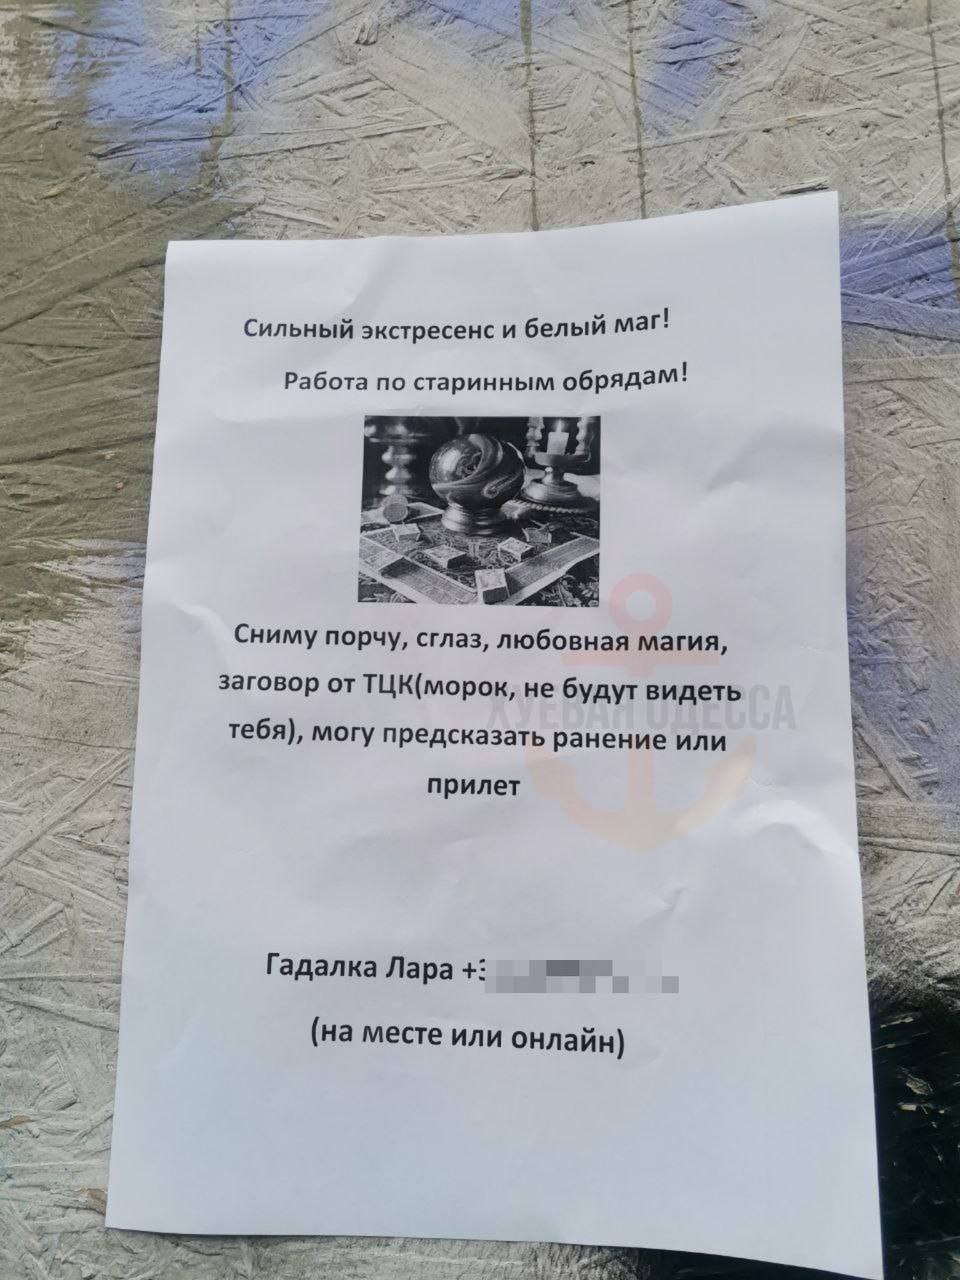 Сильный экстресенс и белый маг!
Работа по старинным обрядам!
Сниму порчу, сглаз, любовная магия,
заговор от ТЦК(морок, не будут видеть
тебя), могу предсказать ранение или
прилет
ХУЕВАЯ ОДЕССА
Гадалка Лара +3
(на месте или онлайн)